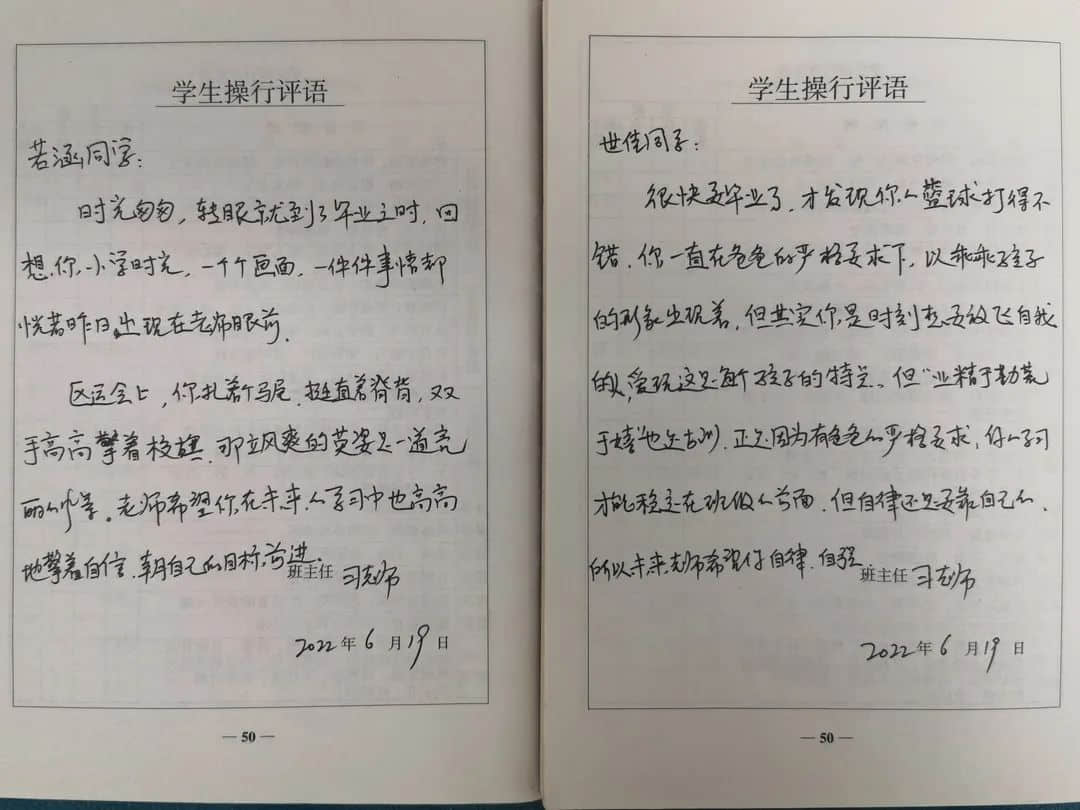 学生操行评语
若涵同学：
时光匆匆，转眼就到了毕业之时，回
想你小学时光，一个个画面，一件件事情都
恍若昨日出现在老师眼前。
区运会上，你扎着个马尾，挺直着脊背，双
手高高擎着校旗，那立风爽的英姿是一道亮
丽的风景。老师希望你在未来的学习中也高高
地擎着自信，朝自己的目标前进。
班主任 习老师
2022年6月19日
— 50 —
学生操行评语
世佳同学：
很快要毕业了，才发现你的篮球打得不
错，你一直在爸爸的严格要求下，以乖乖孩子
的形象出现着，但其实你是时刻想要放飞自我
的人，爱玩这是每个孩子的特点。但“业精于勤荒
于嬉”也是古训，正是因为有爸爸的严格要求，你的学习
才能稳定在班级的前面，但自律还是要靠自己的，
所以未来老师希望你自律、自强。
班主任 习老师
2022年6月19日
— 50 —